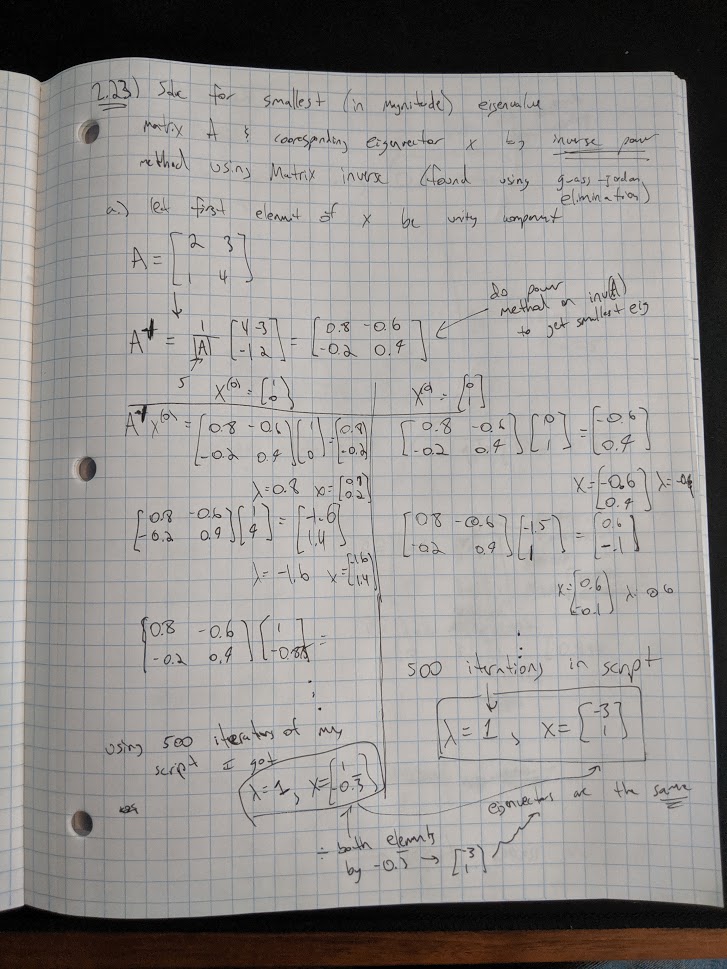 2.23) Solve for smallest (in magnitude) eigenvalue
matrix A & cooresponding eigenvector x by inverse power
method using Matrix inverse (found using guass-jordan elimination)
a.) let first element of x be unity component
A = [2 3; 1 4]
↓
A⁻¹ = 1/|A| [4 -3; -1 2] = [0.8 -0.6; -0.2 0.4]
do power method on inv(A) to get smallest eig
5
x⁽⁰⁾ = [1; 0]
A⁻¹x⁽⁰⁾ = [0.8 -0.6; -0.2 0.4][1; 0] = [0.8; -0.2]
λ=0.8 x=[0.8; 0.2]
[0.8 -0.6; -0.2 0.4][1; 4] = [-1.6; 1.4]
λ = -1.6 x=[-1.6; 1.4]
[0.8 -0.6; -0.2 0.4][1; ] =
using 500 iterations of my
script I got
λ=1, x=[1; -0.3]
÷ both elements
by -0.3 → [-3; 1]
x⁽⁰⁾ = [0; 1]
[0.8 -0.6; -0.2 0.4][0; 1] = [-0.6; 0.4]
x=[-0.6; 0.4] λ=-0.6
[0.8 -0.6; -0.2 0.4][-1.5; 1] = [0.6; -.1]
x=[0.6; -0.1] λ 0.6
500 iterations in script
↓
λ = 1, x = [-3; 1]
eigenvectors are the same